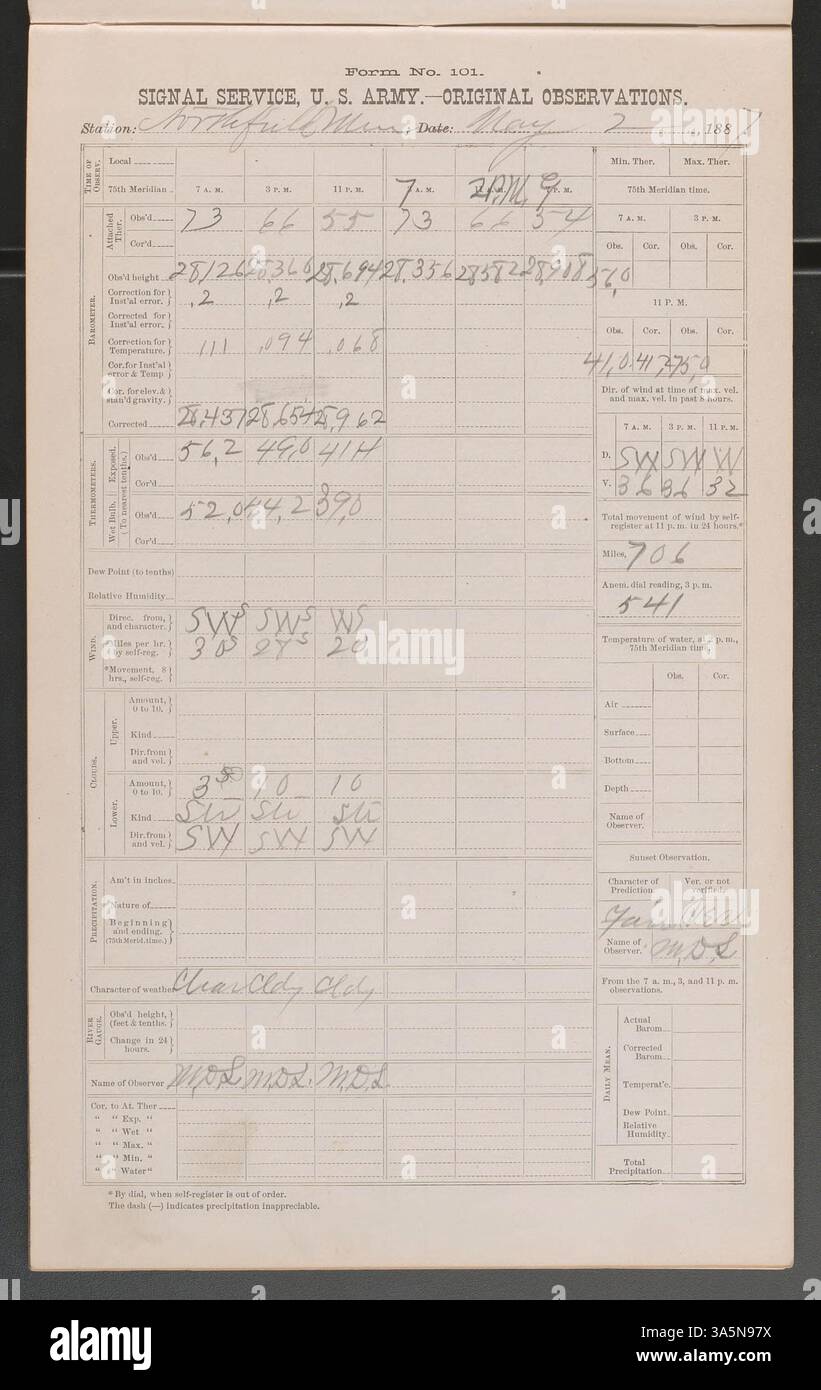 Form No. 101.
SIGNAL SERVICE, U. S. ARMY.—ORIGINAL OBSERVATIONS.
Station: Northfield Minn, Date: May 2, 1887
TIME OF OBSERV.
Local
75th Meridian 7 A. M. 3 P. M. 11 P. M. 7 A. M. 2 P.M. 9 P. M.
Attached Ther.
Obs'd 73 66 55 73 66 54
Cor'd
BAROMETER.
Obs'd height 28,126 28,366 28,694 28,356 28582 28,908
Correction for Inst'al error. ,2 ,2 ,2
Corrected for Inst'al error.
Correction for Temperature. ,111 ,094 ,068
Cor. for Inst'al error & Temp
Cor. for elev. & stan'd gravity.
Corrected 28,437 28,654 28,962
THERMOMETERS.
(To nearest tenths.)
Exposed.
Obs'd 56,2 49,0 41,4
Cor'd
Wet Bulb.
Obs'd 52,0 44,2 39,0
Cor'd
Dew Point (to tenths)
Relative Humidity
WIND.
Direc. from, and character. SWS SWS WS
*Miles per hr. by self-reg. 30 27 20
*Movement, 8 hrs., self-reg.
CLOUDS.
Upper.
Amount, 0 to 10.
Kind
Dir. from and vel.
Lower.
Amount, 0 to 10. 3 10 10
Kind Str Str Str
Dir. from and vel. SW SW SW
PRECIPITATION.
Am't in inches
Nature of
Beginning and ending. (75th Merid. time.)
Character of weather Clear Cldy Cldy
RIVER GAUGE.
Obs'd height, (feet & tenths.)
Change in 24 hours.
Name of Observer M.D.S. M.D.S. M.D.S.
Cor. to At. Ther
" " Exp. "
" " Wet "
" " Max. "
" " Min. "
" " Water "
Min. Ther. Max. Ther.
75th Meridian time.
7 A. M. 3 P. M.
Obs. Cor. Obs. Cor.
56,0
11 P. M.
Obs. Cor. Obs. Cor.
41,0
Dir. of wind at time of max. vel. and max. vel. in past 8 hours.
7 A. M. 3 P. M. 11 P. M.
D. SW SW W
V. 36 36 32
Total movement of wind by self-register at 11 p. m. in 24 hours.*
Miles, 706
Anem. dial reading, 3 p. m.
541
Temperature of water, at 2 p. m., 75th Meridian time.
Obs. Cor.
Air
Surface
Bottom
Depth
Name of Observer.
Sunset Observation.
Character of Prediction. Ver. or not verified.
Fair
Name of Observer. M.D.S
From the 7 a. m., 3, and 11 p. m. observations.
DAILY MEAN.
Actual Barom
Corrected Barom
Temperat'e.
Dew Point
Relative Humidity
Total Precipitation
* By dial, when self-register is out of order.
The dash (—) indicates precipitation inappreciable.
alamy
www.alamy.com
Image ID: 3A5N97X